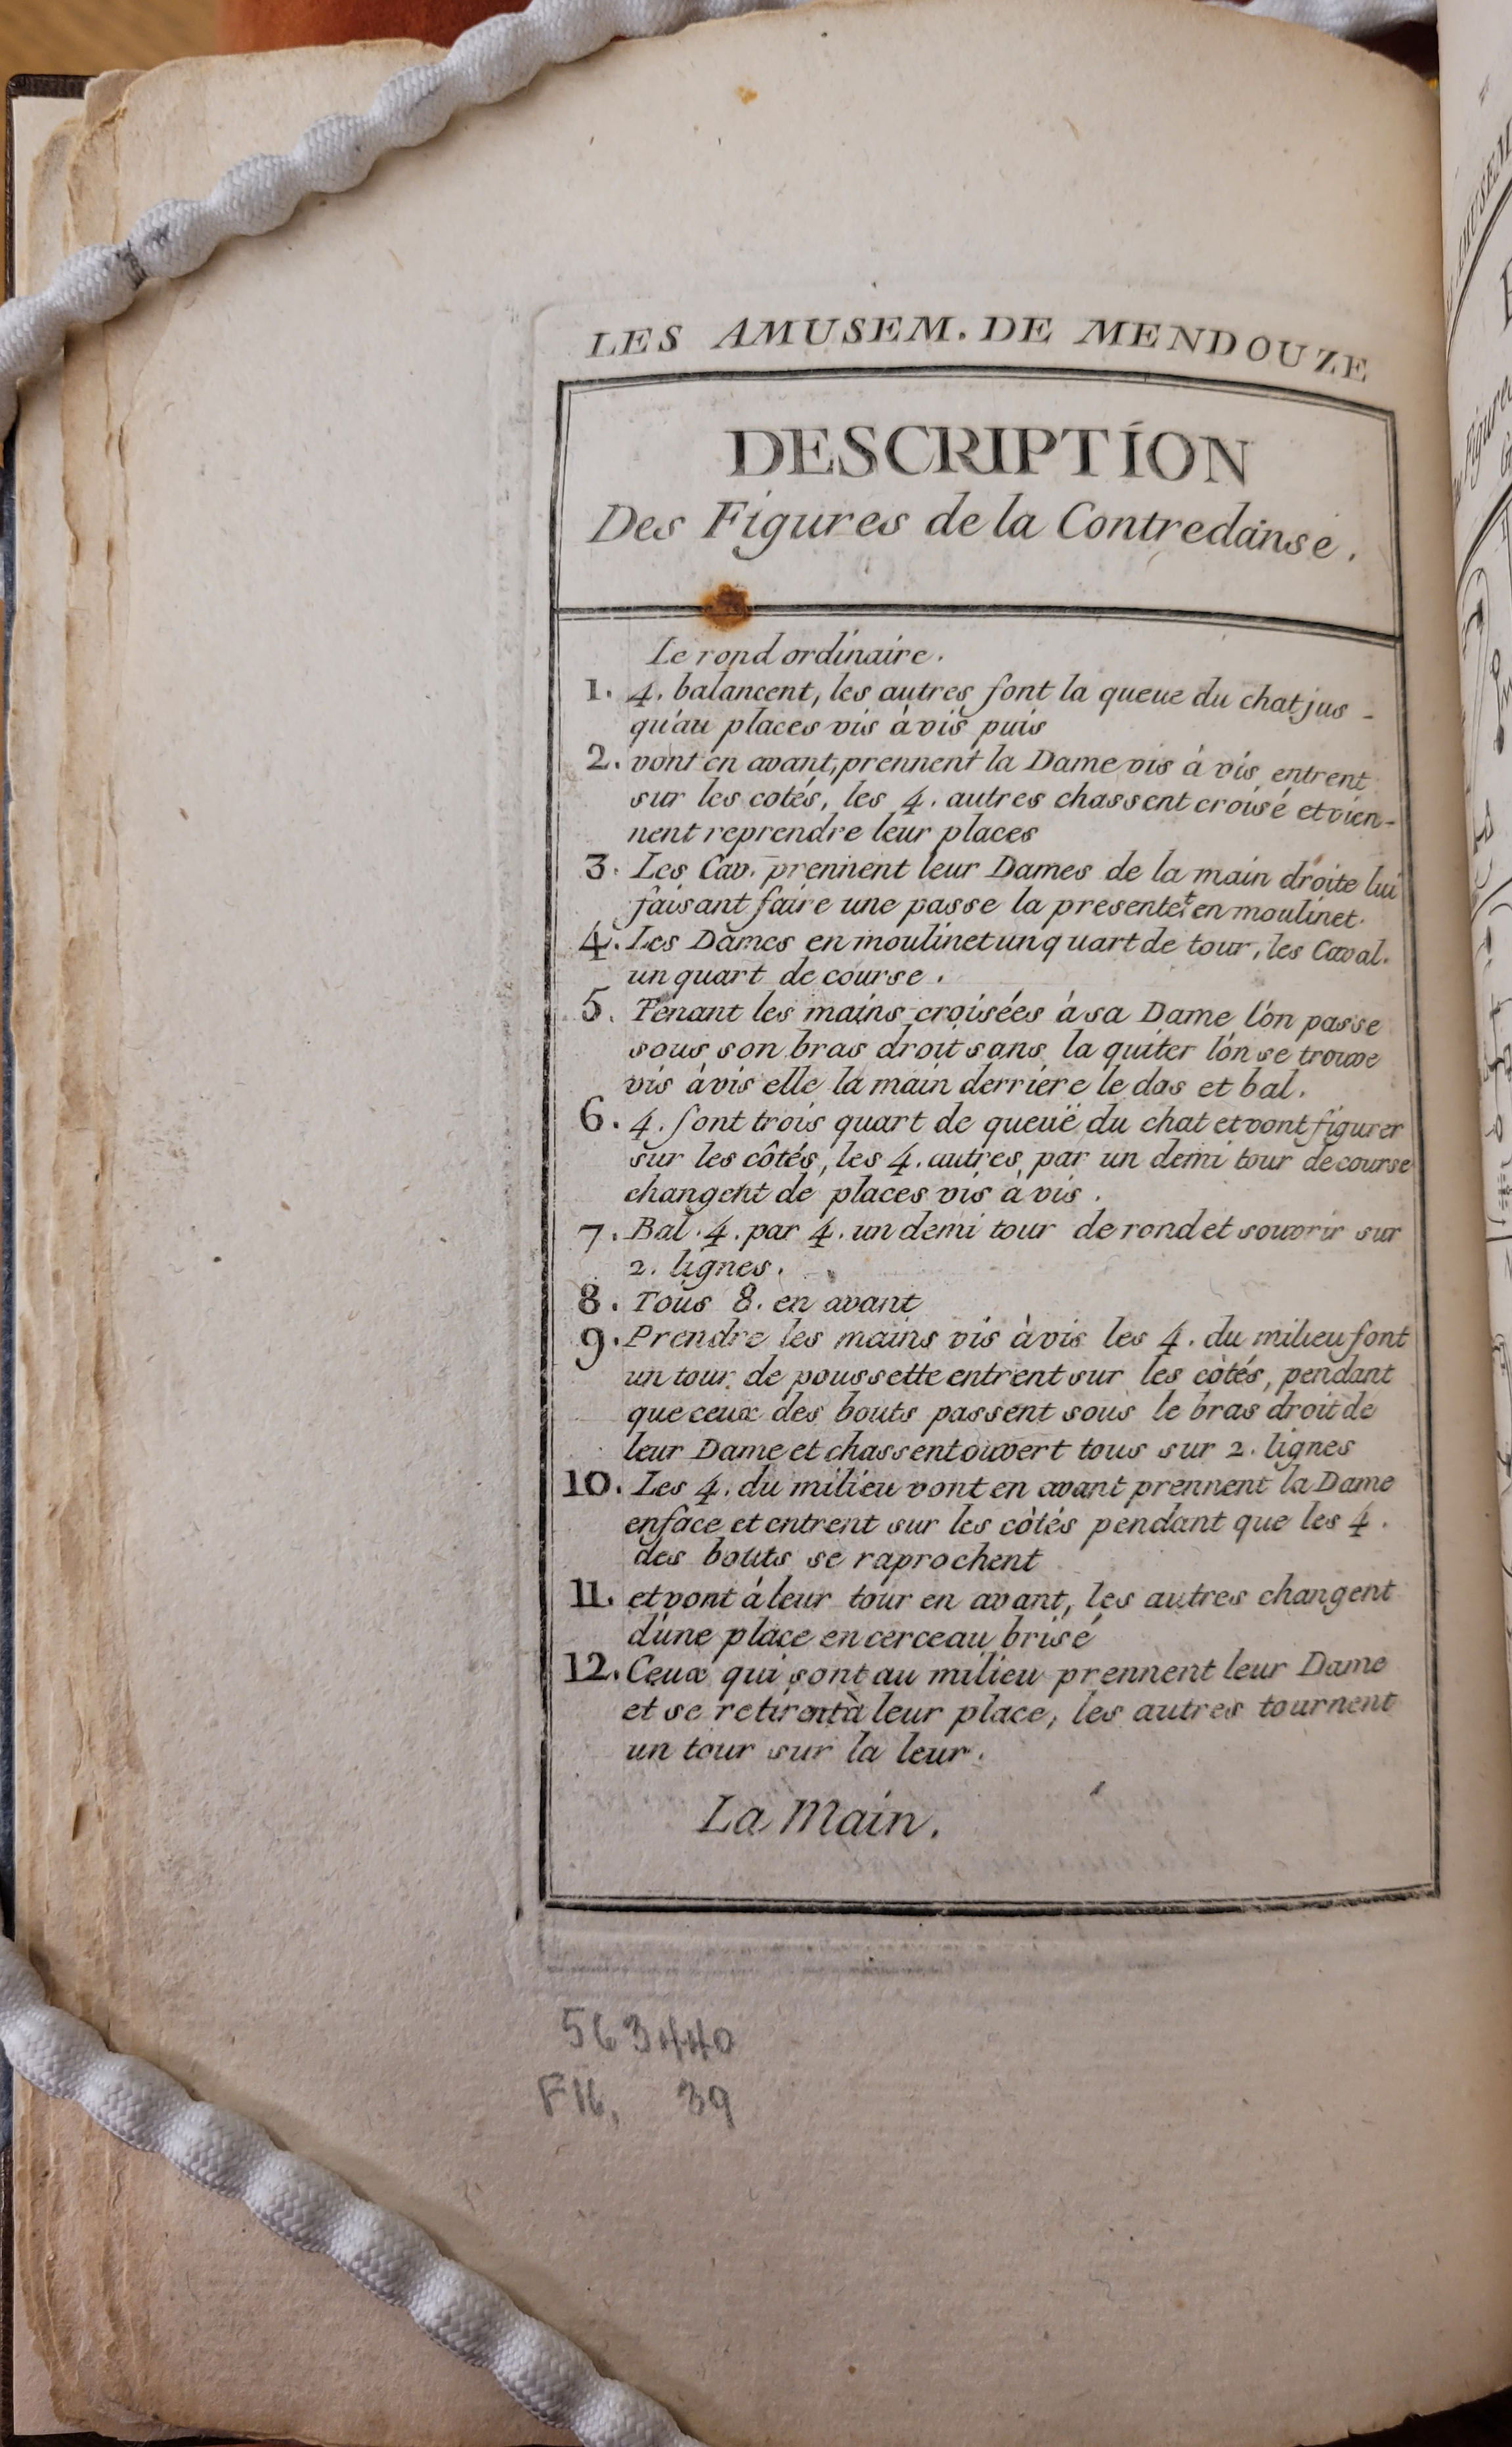 LES AMUSEM. DE MENDOUZE
DESCRIPTION
Des Figures de la Contredanse.
Le rond ordinaire.
1. 4. balancent, les autres font la queue du chat jus-
qu'au places vis à vis puis
2. vont en avant, prennent la Dame vis à vis entrent
sur les cotés, les 4. autres chassent croisé et vien-
nent reprendre leur places
3. Les Cav. prennent leur Dames de la main droite lui
faisant faire une passe la presente.t en moulinet.
4. Les Dames en moulinet un quart de tour, les Caval.
un quart de course.
5. Tenant les mains croisées à sa Dame l'on passe
sous son bras droit sans la quiter l'on se trouve
vis àvis elle la main derriere le dos et bal.
6. 4. font trois quart de queuë du chat et vont figurer
sur les côtés, les 4. autres par un demi tour de course
changent de places vis à vis.
7. Bal. 4. par 4. un demi tour de rond et souvrir sur
2. lignes.
8. Tous 8. en avant
9. Prendre les mains vis àvis les 4. du milieu font
un tour de poussette entrent sur les côtés, pendant
que ceux des bouts passent sous le bras droit de
leur Dame et chassent ouvert tous sur 2. lignes
10. Les 4. du milieu vont en avant prennent la Dame
enface et entrent sur les côtés pendant que les 4.
des bouts se raprochent
11. et vont à leur tour en avant, les autres changent
d'une place en cerceau brisé
12. Ceux qui sont au milieu prennent leur Dame
et se retirent à leur place, les autres tournent
un tour sur la leur.
La Main.
563440
39